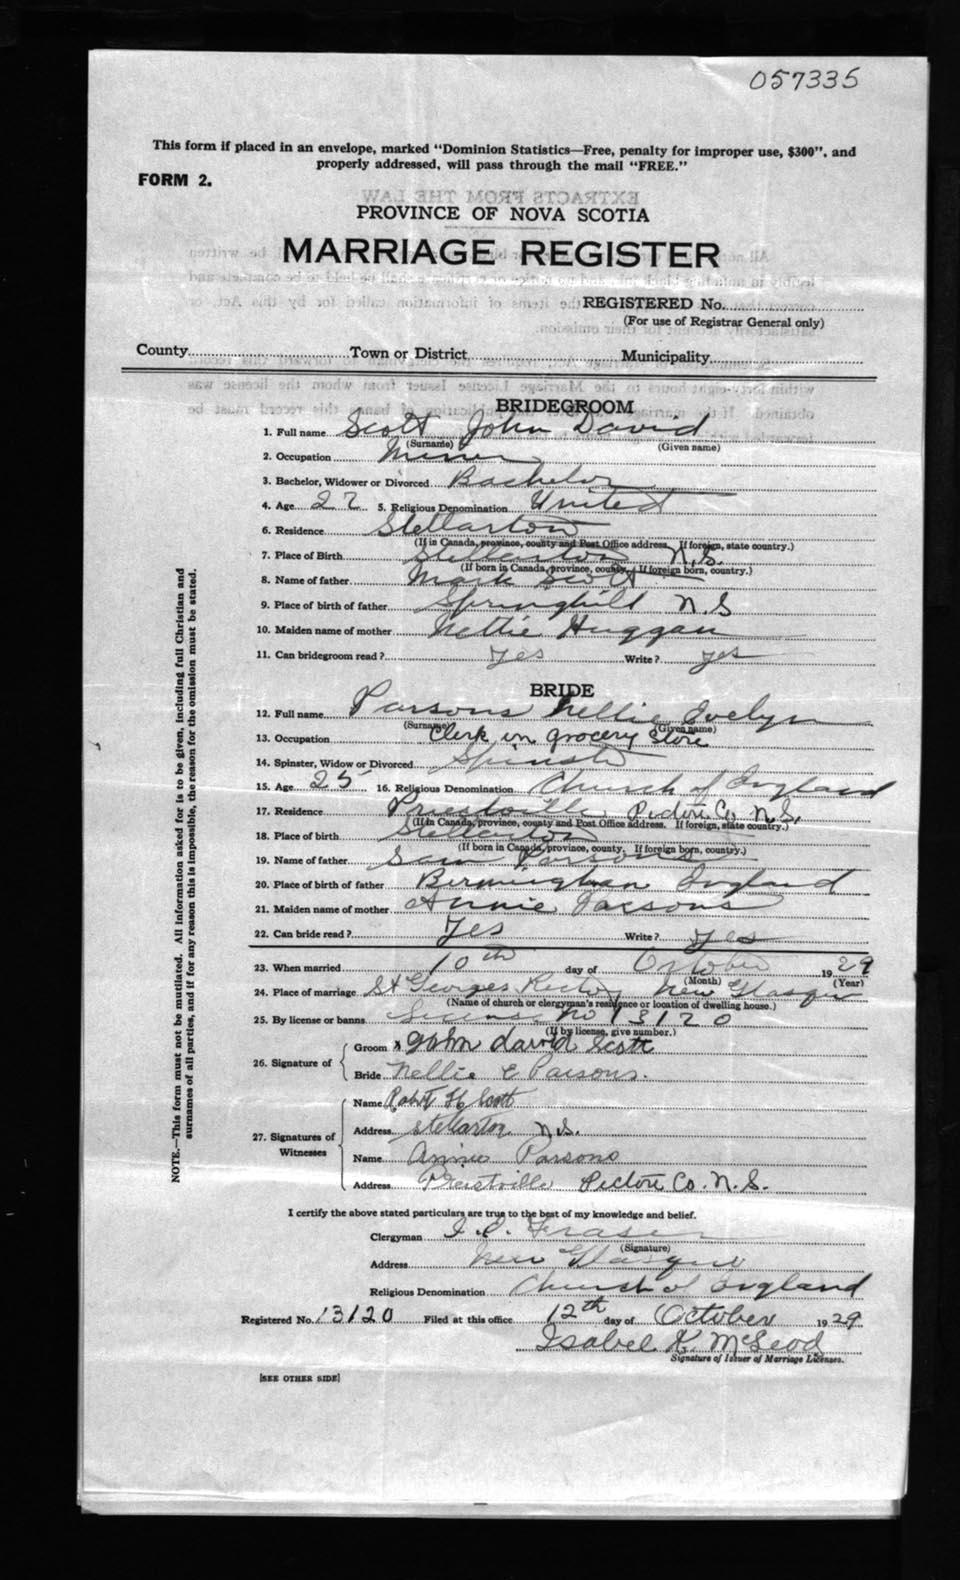 057335
This form if placed in an envelope, marked "Dominion Statistics—Free, penalty for improper use, $300", and
properly addressed, will pass through the mail "FREE."
FORM 2.
EXTRACTS FROM THE LAW
PROVINCE OF NOVA SCOTIA
MARRIAGE REGISTER
REGISTERED No.
(For use of Registrar General only)
County Town or District Municipality
BRIDEGROOM
1. Full name Scott John David
(Surname) (Given name)
2. Occupation Miner
3. Bachelor, Widower or Divorced Bachelor
4. Age 27 5. Religious Denomination United
6. Residence Stellarton
(If in Canada, province, county and Post Office address. If foreign, state country.)
7. Place of Birth Stellarton N.S.
(If born in Canada, province, county. If foreign born, country.)
8. Name of father Mark Scott
9. Place of birth of father Springhill N.S
10. Maiden name of mother Nettie Huggan
11. Can bridegroom read? Yes Write? yes
BRIDE
12. Full name Parsons Nellie Evelyn
(Surname) (Given name)
13. Occupation Clerk in grocery store
14. Spinster, Widow or Divorced Spinster
15. Age 25 16. Religious Denomination Church of England
17. Residence Priestville Pictou Co. N.S.
(If in Canada, province, county and Post Office address. If foreign, state country.)
18. Place of birth Stellarton
(If born in Canada, province, county. If foreign born, country.)
19. Name of father Sam Parsons
20. Place of birth of father Birmingham England
21. Maiden name of mother Annie Parsons
22. Can bride read? Yes Write? yes
23. When married 10th day of October 1929
(Month) (Year)
24. Place of marriage St Georges Rectory New Glasgow
(Name of church or clergyman's residence or location of dwelling house.)
25. By license or banns License No 13120
(If by license, give number.)
26. Signature of
Groom x John david Scott
Bride Nellie E Parsons.
27. Signatures of Witnesses
Name Robt H Scott
Address Stellarton N.S.
Name Annie Parsons
Address Priestville Pictou Co. N.S.
I certify the above stated particulars are true to the best of my knowledge and belief.
Clergyman Fraser
(Signature)
Address New Glasgow
Religious Denomination Church of England
Registered No. 13120 Filed at this office 12th day of October 1929
Isabel K. McLeod
Signature of Issuer of Marriage Licenses.
[SEE OTHER SIDE]
NOTE.—This form must not be mutilated. All information asked for is to be given, including full Christian and
surnames of all parties, and if for any reason this is impossible, the reason for the omission must be stated.